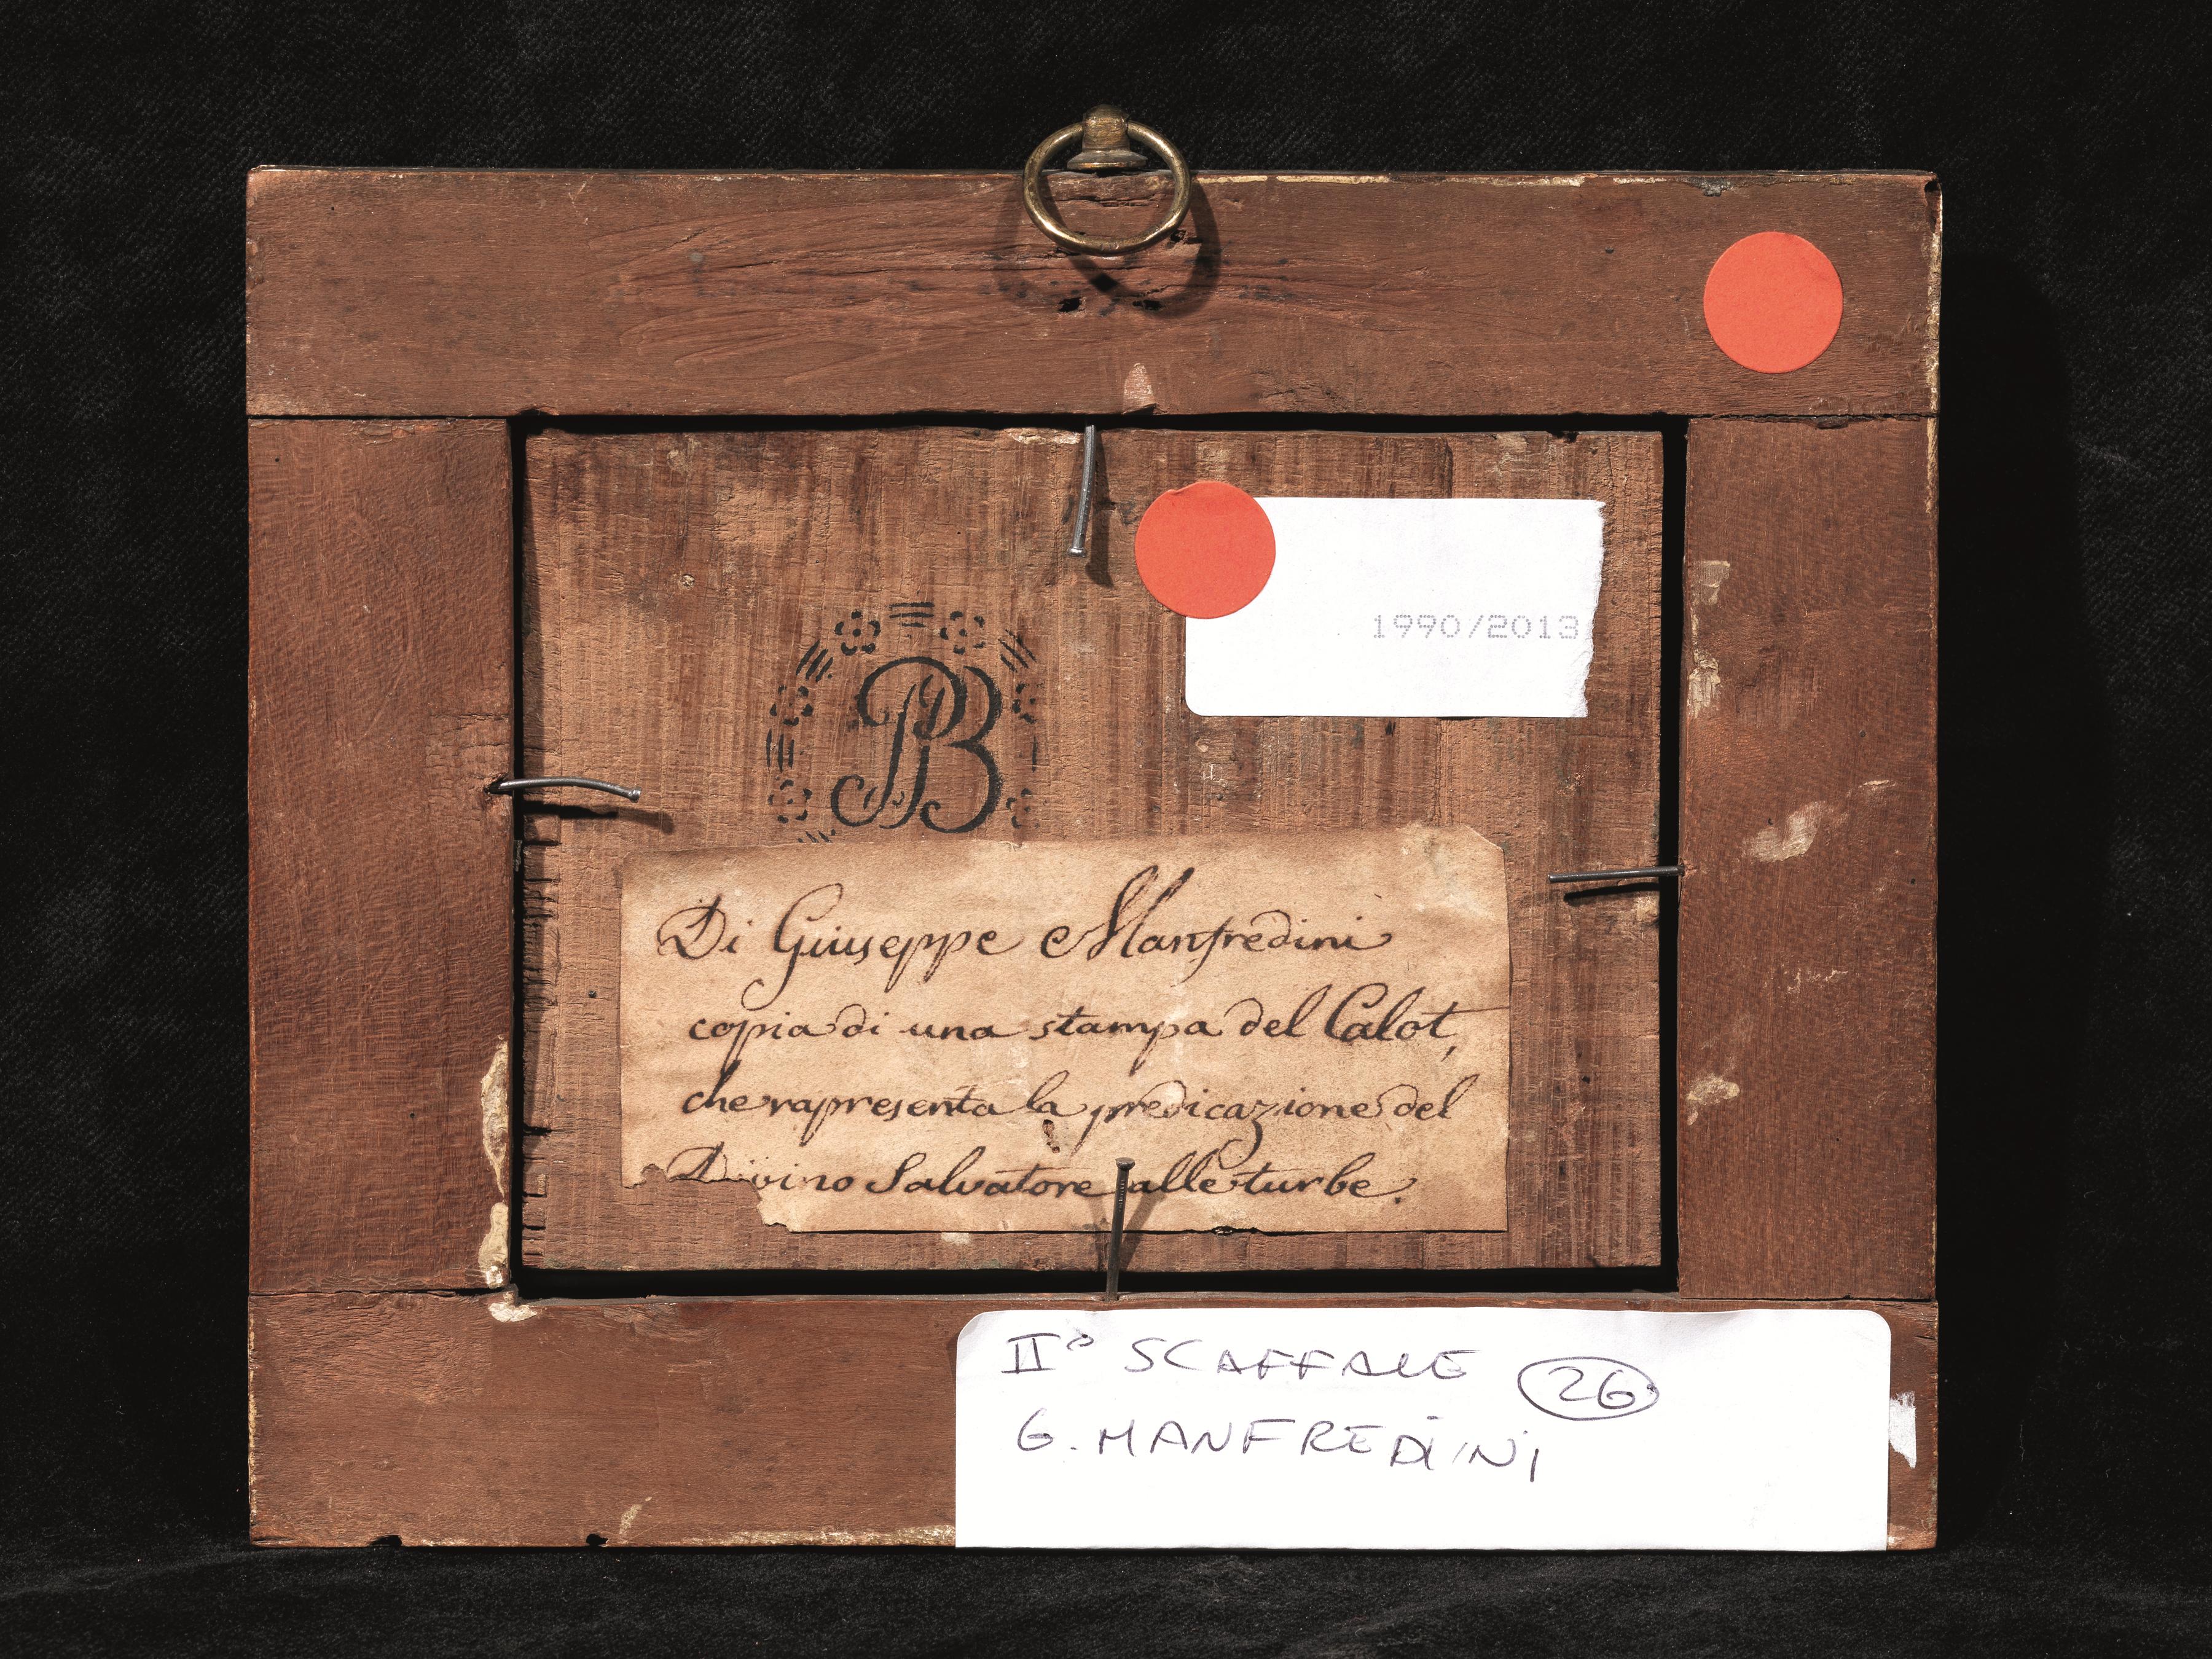 1990/2013
PB
Di Giuseppe Manfredini
copia di una stampa del Calot,
che rapresenta la predicazione del
Divino Salvatore alle turbe.
II° SCAFFALE 26
G. MANFREDINI